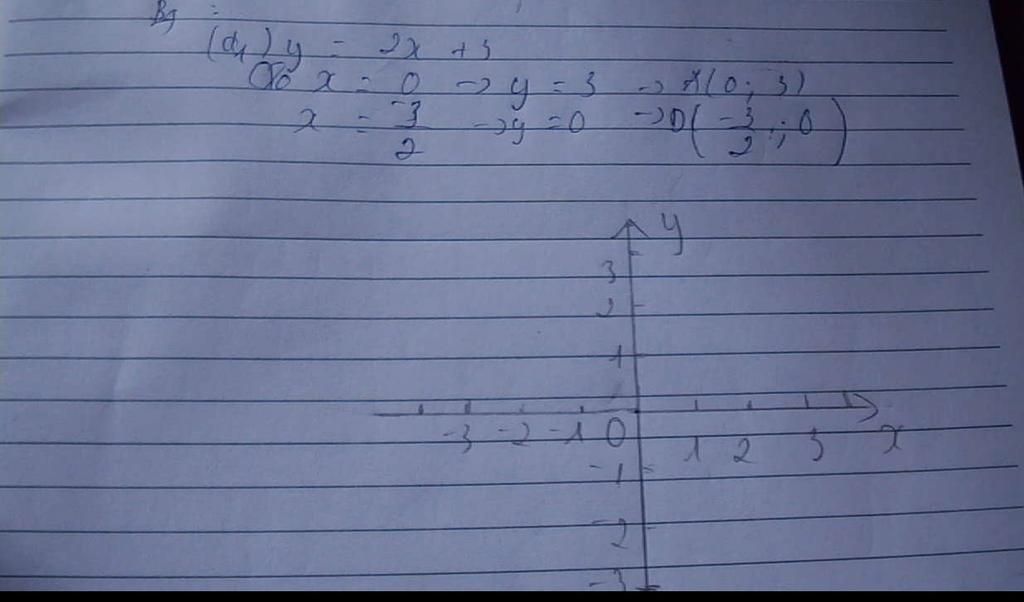 Bg :
(d1) y = 2x + 3
Cho x = 0 -> y = 3 -> A(0; 3)
x = -3/2 -> y = 0 -> D(-3/2 ; 0)
y
3
2
1
-3 -2 -1 0 1 2 3 x
-1
-2
-3